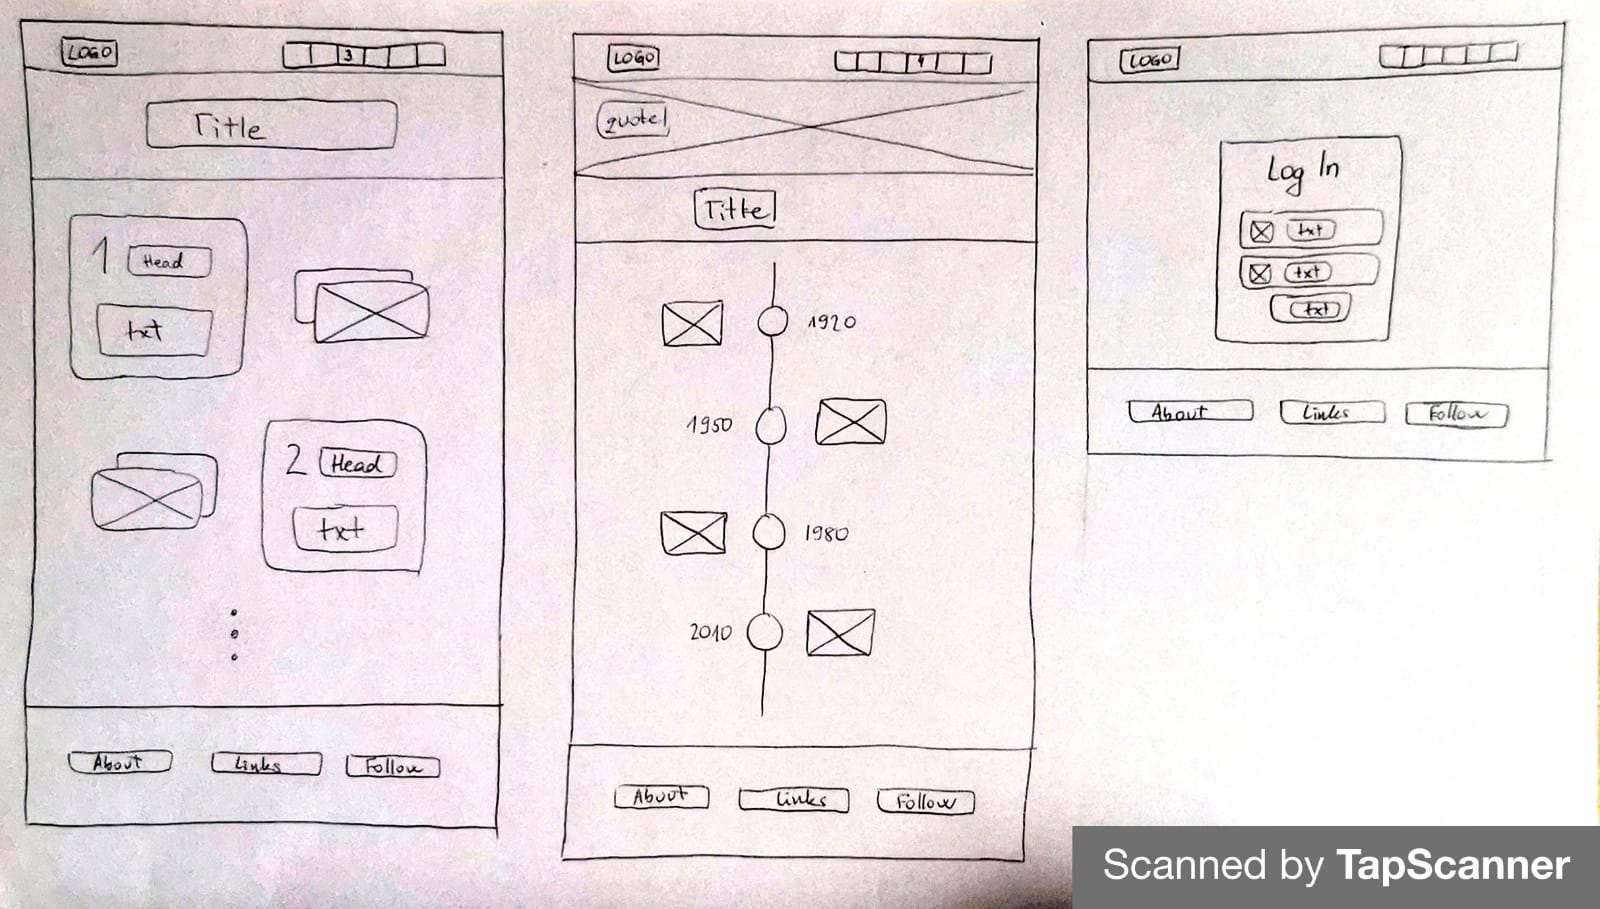 LOGO
3
Title
1 Head
txt
2 Head
txt
About
Links
Follow
LOGO
4
quote!
Title
1920
1950
1980
2010
About
Links
Follow
LOGO
Log In
txt
txt
txt
About
Links
Follow
Scanned by TapScanner